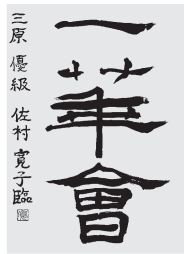 一華會
三原 優級 佐村 寛子臨